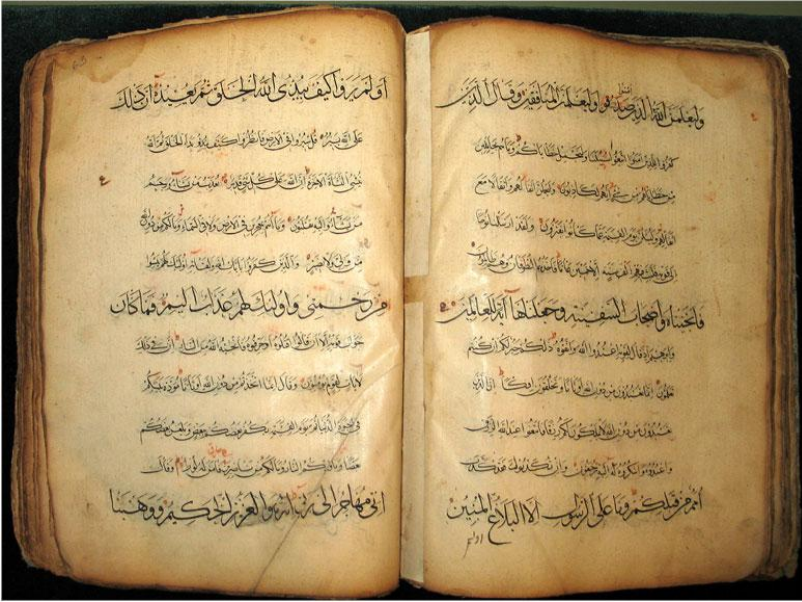 وليعلمن الله الذين صدقوا وليعلمن المنافقين وقال الذين
كفروا للذين امنوا اتبعوا سبيلنا ولنحمل خطاياكم وما هم بحاملين
من خطاياهم من شئ انهم لكاذبون وليحملن اثقالهم واثقالا مع
اثقالهم وليسئلن يوم القيمة عما كانوا يفترون ولقد ارسلنا نوحا
الى قومه فلبث فيهم الف سنة الا خمسين عاما فاخذهم الطوفان وهم ظالمون
فانجيناه واصحاب السفينة وجعلناها آية للعالمين
وابرهيم اذ قال لقومه اعبدوا الله واتقوه ذلكم خير لكم ان كنتم
تعلمون انما تعبدون من دون الله اوثانا وتخلقون افكا ان الذين
تعبدون من دون الله لا يملكون لكم رزقا فابتغوا عند الله الرزق
واعبدوه واشكروا له اليه ترجعون وان تكذبوا فقد كذب
امم من قبلكم وما على الرسول الا البلاغ المبين
اولم
اولم يروا كيف يبدئ الله الخلق ثم يعيده ان ذلك
على الله يسير قل سيروا فى الارض فانظروا كيف بدأ الخلق ثم الله
ينشئ النشأة الاخرة ان الله على كل شئ قدير يعذب من يشاء ويرحم
من يشاء واليه تقلبون وما انتم بمعجزين فى الارض ولا فى السماء وما لكم من دون الله
من ولى ولا نصير والذين كفروا بآيات الله ولقائه اولئك يئسوا
من رحمتى واولئك لهم عذاب اليم فما كان
جواب قومه الا ان قالوا اقتلوه او حرقوه فانجيه الله من النار ان فى ذلك
لآيات لقوم يؤمنون وقال انما اتخذتم من دون الله اوثانا مودة بينكم
فى الحيوة الدنيا ثم يوم القيمة يكفر بعضكم ببعض ويلعن بعضكم
بعضا ومأويكم النار وما لكم من ناصرين فامن له لوط وقال
انى مهاجر الى ربى انه هو العزيز الحكيم ووهبنا